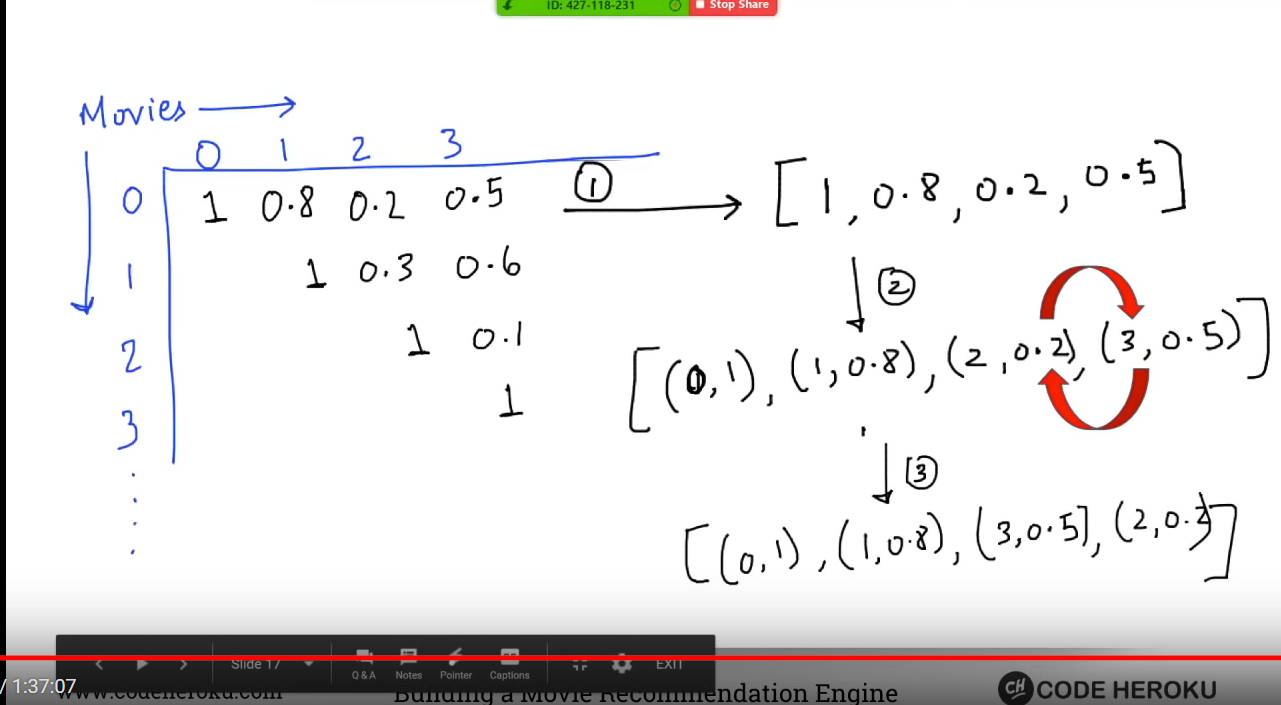 ID: 427-118-231 Stop Share
Movies
0 1 2 3
0 1 0.8 0.2 0.5 1 [1, 0.8, 0.2, 0.5]
1 1 0.3 0.6 2
2 1 0.1 [(0,1), (1,0.8), (2,0.2), (3,0.5)]
3 1
3
[(0,1), (1,0.8), (3,0.5], (2,0.2)]
Slide 17 Q & A Notes Pointer Captions EXIT
/ 1:37:07
www.codeheroku.com Building a Movie Recommendation Engine CH CODE HEROKU